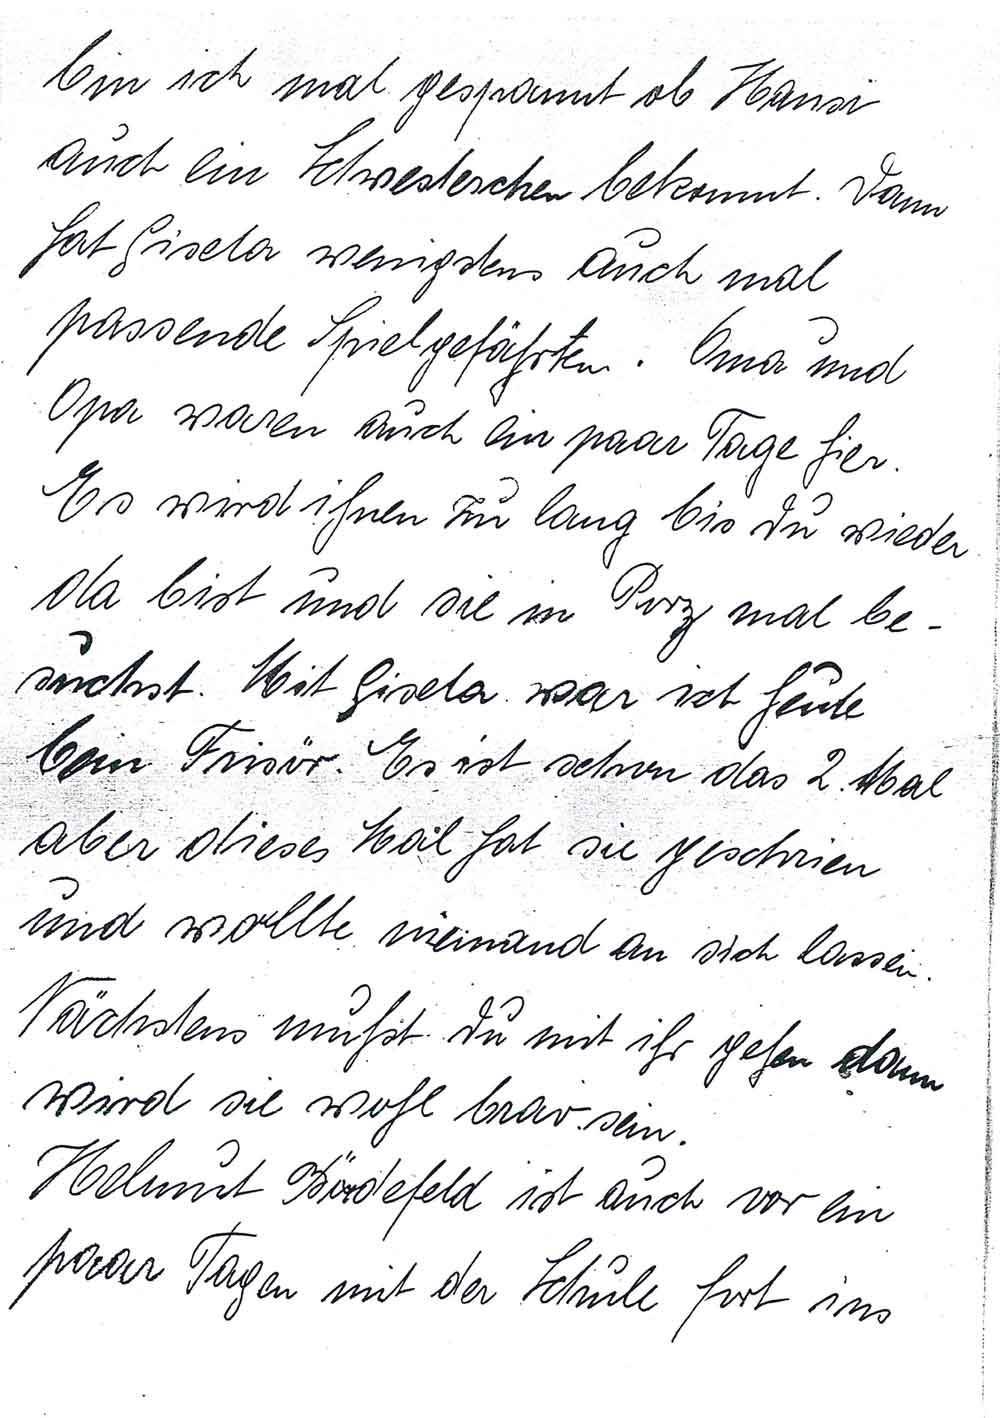 bin ich mal gespannt ob Hansi
auch ein Schwesterchen bekommt. Dann
hat Gisela wenigstens auch mal
passende Spielgefährten. Oma und
Opa waren auch ein paar Tage hier.
Es wird ihnen zu lang bis du wieder
da bist und sie in Porz mal be-
suchst. Mit Gisela war ich heute
beim Frisör. Es ist schon das 2. Mal
aber dieses Mal hat sie geschrien
und wollte niemand an sich lassen.
Nächstens mußt du mit ihr gehen dann
wird sie wohl brav sein.
Helmut Bördefeld ist auch vor ein
paar Tagen mit der Schule fort ins